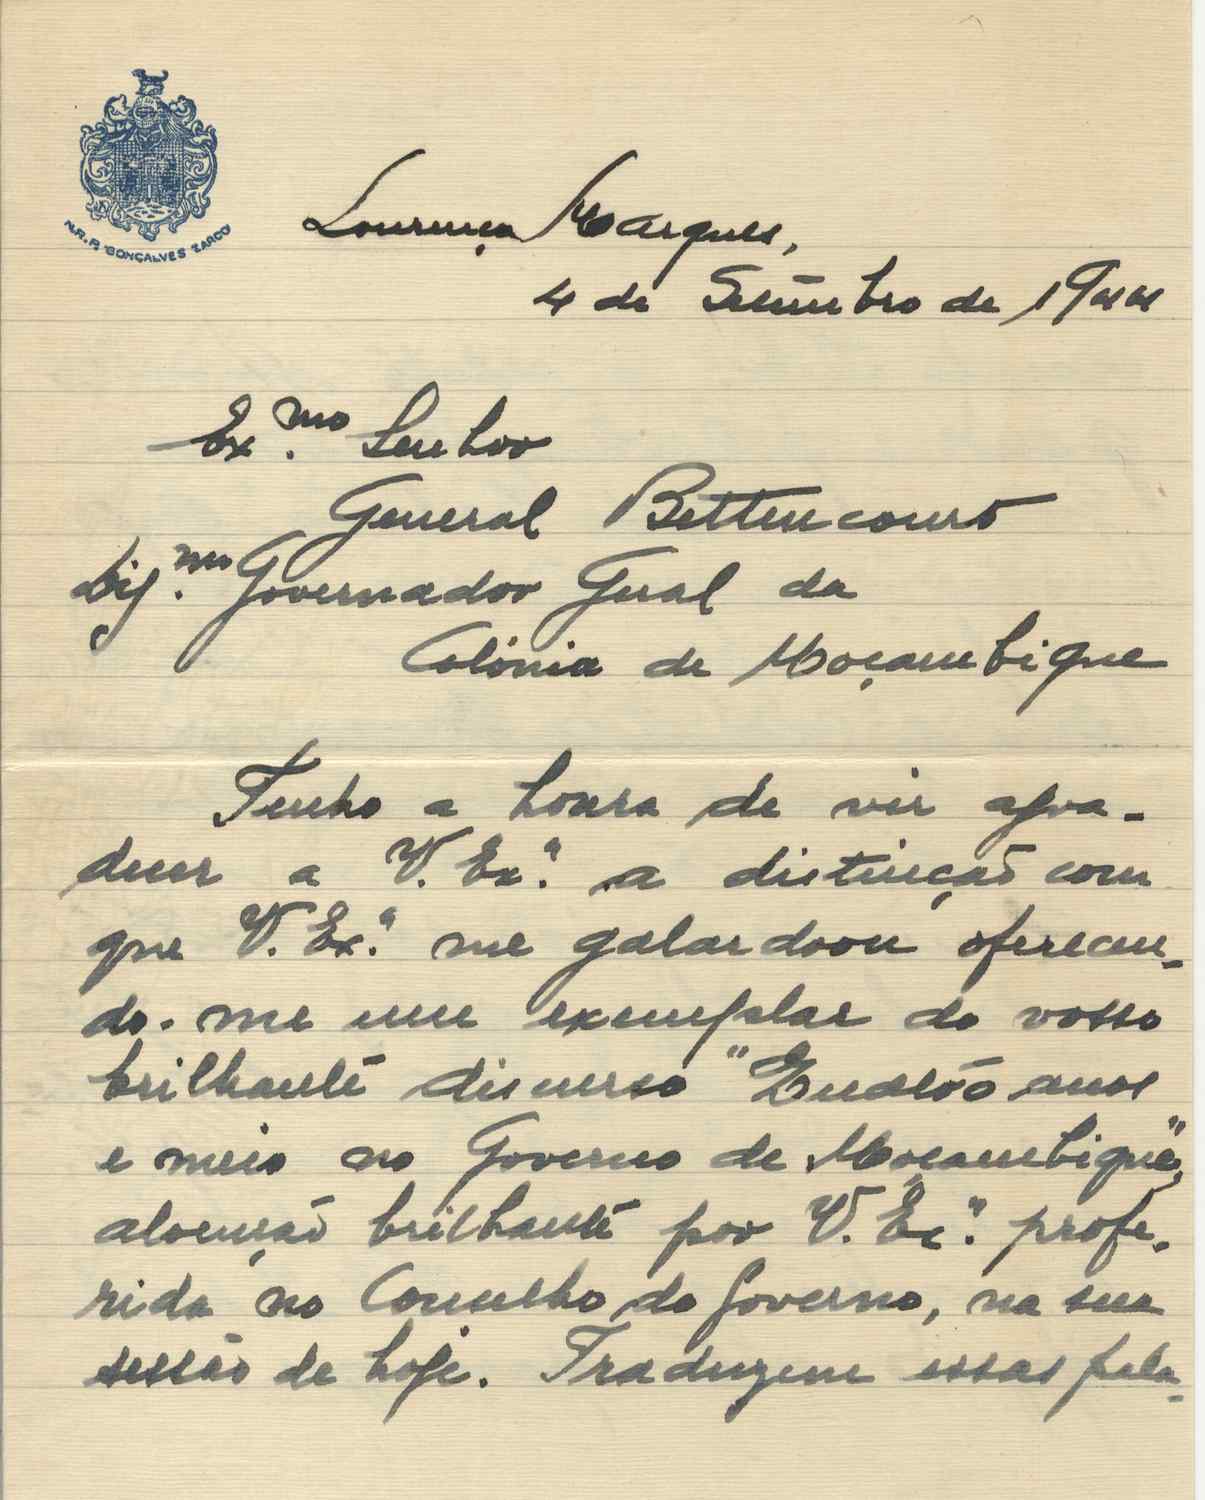 N.R.P. "GONÇALVES ZARCO"
Lourenço Marques,
4 de Setembro de 1944
Ex.mo Senhor
General Bettencourt
Dig.mo Governador Geral da
Colónia de Moçambique
Tenho a honra de vir agra-
decer a V. Ex.a a distinção com
que V. Ex.a me galardoou oferecen-
do-me um exemplar do vosso
brilhante discurso "Quatro anos
e meio no Governo de Moçambique",
alocução brilhante por V. Ex.a profe-
rida no Conselho do Governo, na sua
sessão de hoje. Traduzem essas pala-